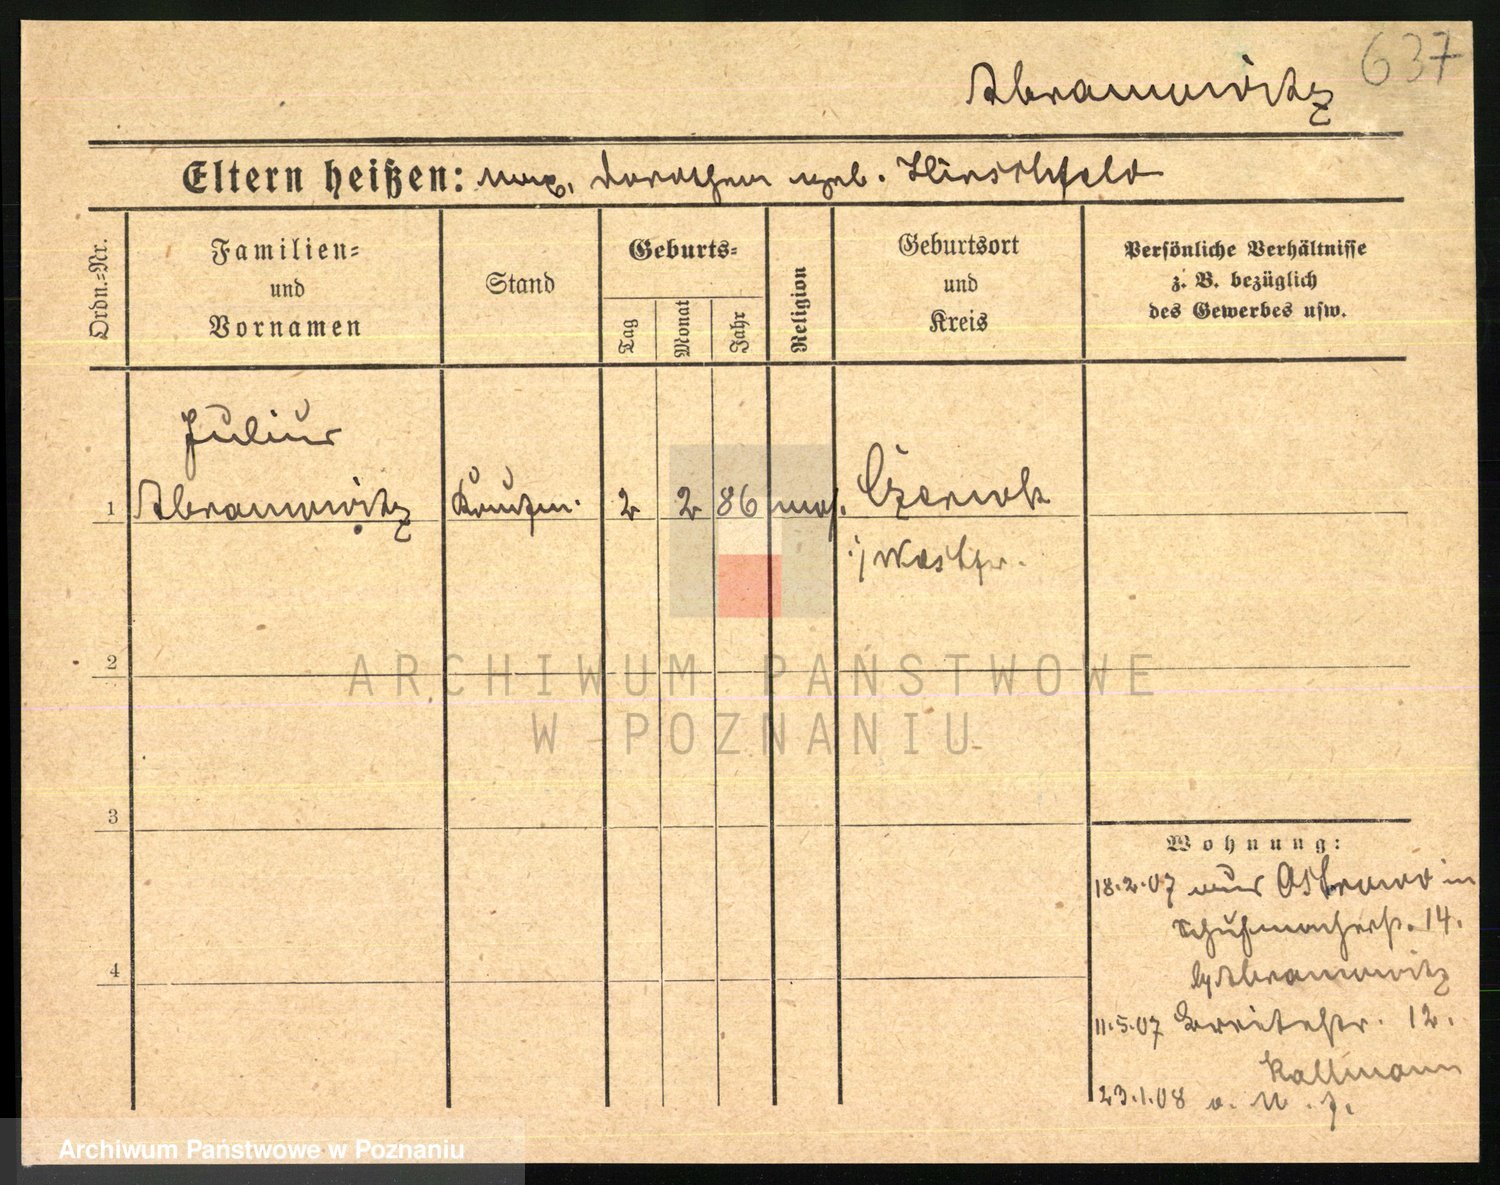 637
Abramowitz
Eltern heißen: Max, Dorothea geb. Hirschfeld
Ordn.-Nr.
Familien-
und
Vornamen
Stand
Geburts-
Tag
Monat
Jahr
Religion
Geburtsort
und
Kreis
Persönliche Verhältnisse
z. B. bezüglich
des Gewerbes usw.
Julius
1 Abramowitz Kaufm. 2 2 86 mos. Czersk
i/ Westpr.
2
ARCHIWUM PAŃSTWOWE
W POZNANIU
3
Wohnung:
18.2.07 aus Ostrowo in
Schuhmacherstr. 14.
b/ Abramowitz
4
11.5.07 Breitestr. 12.
Kallmann
23.1.08 v. U. z.
Archiwum Państwowe w Poznaniu